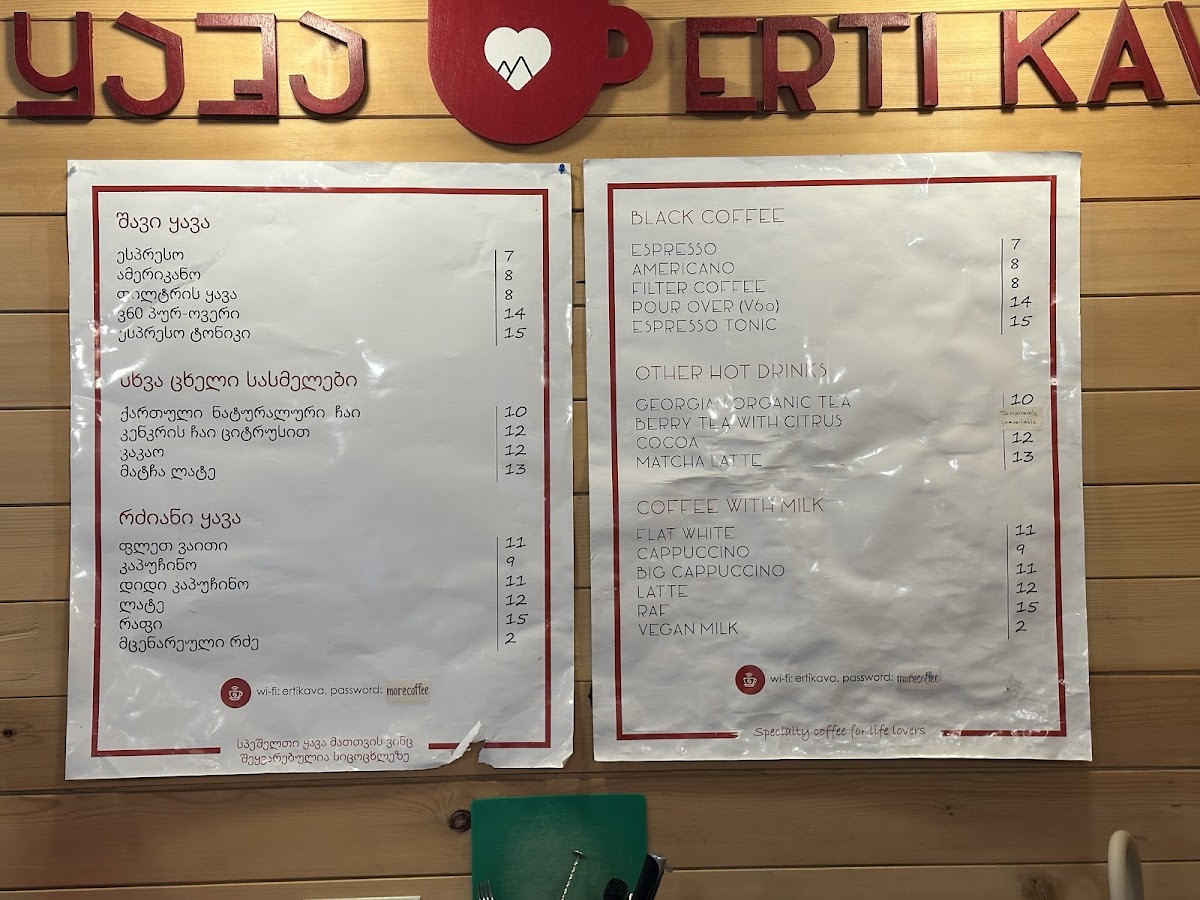 ყავა
ERTI KAV
შავი ყავა
ესპრესო 7
ამერიკანო 8
ფილტრის ყავა 8
ვ60 პურ-ოვერი 14
ესპრესო ტონიკი 15
სხვა ცხელი სასმელები
ქართული ნატურალური ჩაი 10
კენკრის ჩაი ციტრუსით 12
კაკაო 12
მატჩა ლატე 13
რძიანი ყავა
ფლეთ ვაითი 11
კაპუჩინო 9
დიდი კაპუჩინო 11
ლატე 12
რაფი 15
მცენარეული რძე 2
wi-fi: ertikava, password: morecoffee
სპეშელთი ყავა მათთვის ვინც
შეყვარებულია სიცოცხლეზე
BLACK COFFEE
ESPRESSO 7
AMERICANO 8
FILTER COFFEE 8
POUR OVER (V60) 14
ESPRESSO TONIC 15
OTHER HOT DRINKS
GEORGIAN ORGANIC TEA 10
BERRY TEA WITH CITRUS Temporarely
unavailable
COCOA 12
MATCHA LATTE 13
COFFEE WITH MILK
FLAT WHITE 11
CAPPUCCINO 9
BIG CAPPUCCINO 11
LATTE 12
RAF 15
VEGAN MILK 2
wi-fi: ertikava, password: morecoffee
Specialty coffee for life lovers